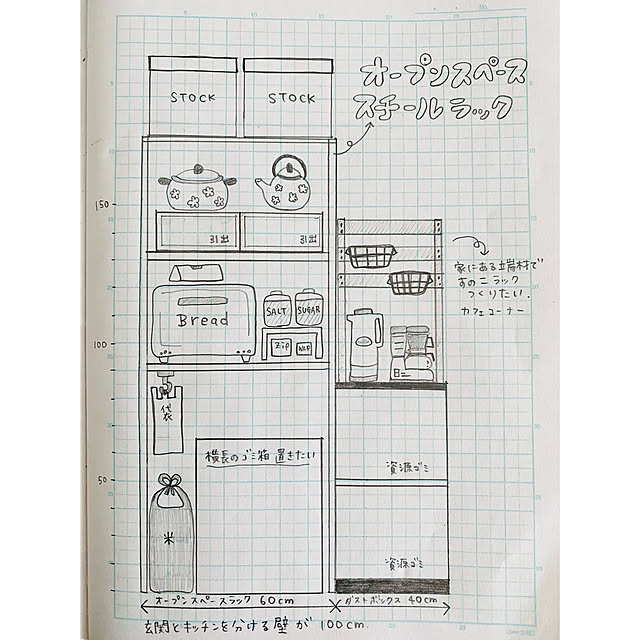 オープンスペース
スチールラック
STOCK
STOCK
引出
引出
150
100
50
家にある端材で
すのこラック
つくりたい.
カフェコーナー
Bread
SALT
SUGAR
Zip
袋
横長のゴミ箱 置きたい
米
資源ゴミ
資源ゴミ
オープンスペースラック 60cm
ダストボックス 40cm
玄関とキッチンを分ける壁が 100cm.
No.